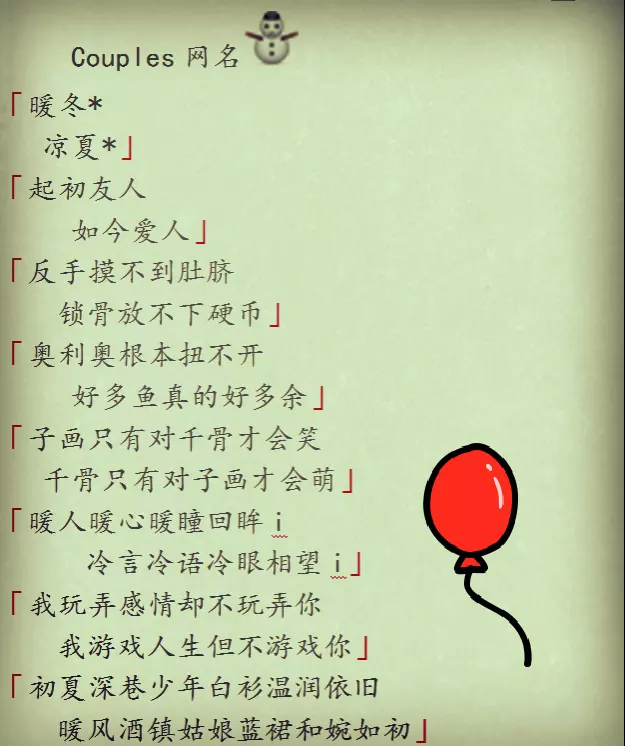 Couples 网名
「暖冬*
凉夏*」
「起初友人
如今爱人」
「反手摸不到肚脐
锁骨放不下硬币」
「奥利奥根本扭不开
好多鱼真的好多余」
「子画只有对千骨才会笑
千骨只有对子画才会萌」
「暖人暖心暖瞳回眸i
冷言冷语冷眼相望i」
「我玩弄感情却不玩弄你
我游戏人生但不游戏你」
「初夏深巷少年白衫温润依旧
暖风酒镇姑娘蓝裙和婉如初」